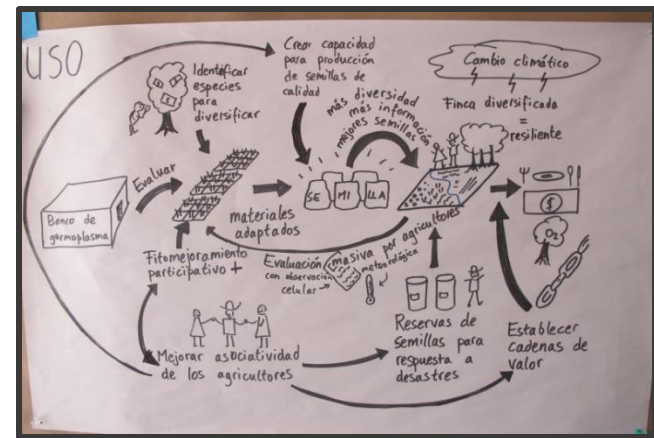 USO
Identificar
especies
para
diversificar
Crear capacidad
para producción
de semillas de
calidad
Cambio climático
más diversidad
más información
mejores semillas
Finca diversificada
=
resiliente
Evaluar
Banco de
germoplasma
SE MI LLA
materiales
adaptados
$
O2
Fitomejoramiento
participativo +
Evaluación masiva por agricultores
con observación meteorológica
celular
Mejorar asociatividad
de los agricultores
Reservas de
semillas para
respuesta a
desastres
Establecer
cadenas de
valor